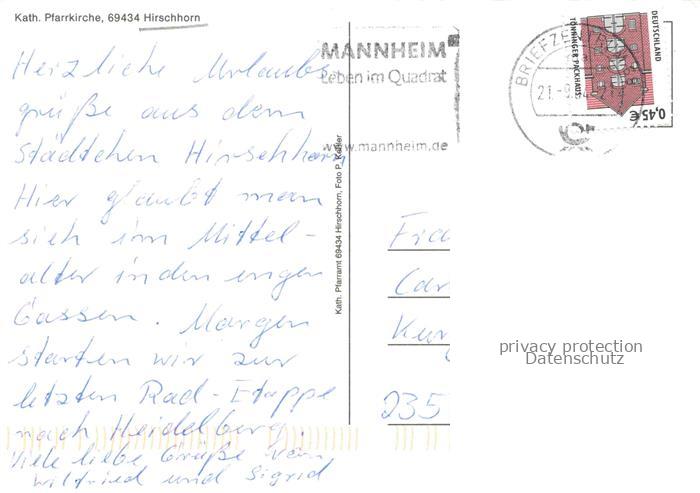 Kath. Pfarrkirche, 69434 Hirschhorn
Herzliche Urlaubs
grüße aus dem
Städtchen Hirschhorn
Hier glaubt man
sich im Mittel-
alter in den engen
Gassen. Morgen
starten wir zur
letzten Rad-Etappe
nach Heidelberg.
Viele liebe Grüße von
Wilfried und Sigrid
Kath. Pfarramt 69434 Hirschhorn, Foto P.
MANNHEIM
Leben im Quadrat
www.mannheim.de
BRIEFZE
21.-9.
DEUTSCHLAND
TÖNNINGER PACKHAUS
0,45 €
235
privacy protection
Datenschutz